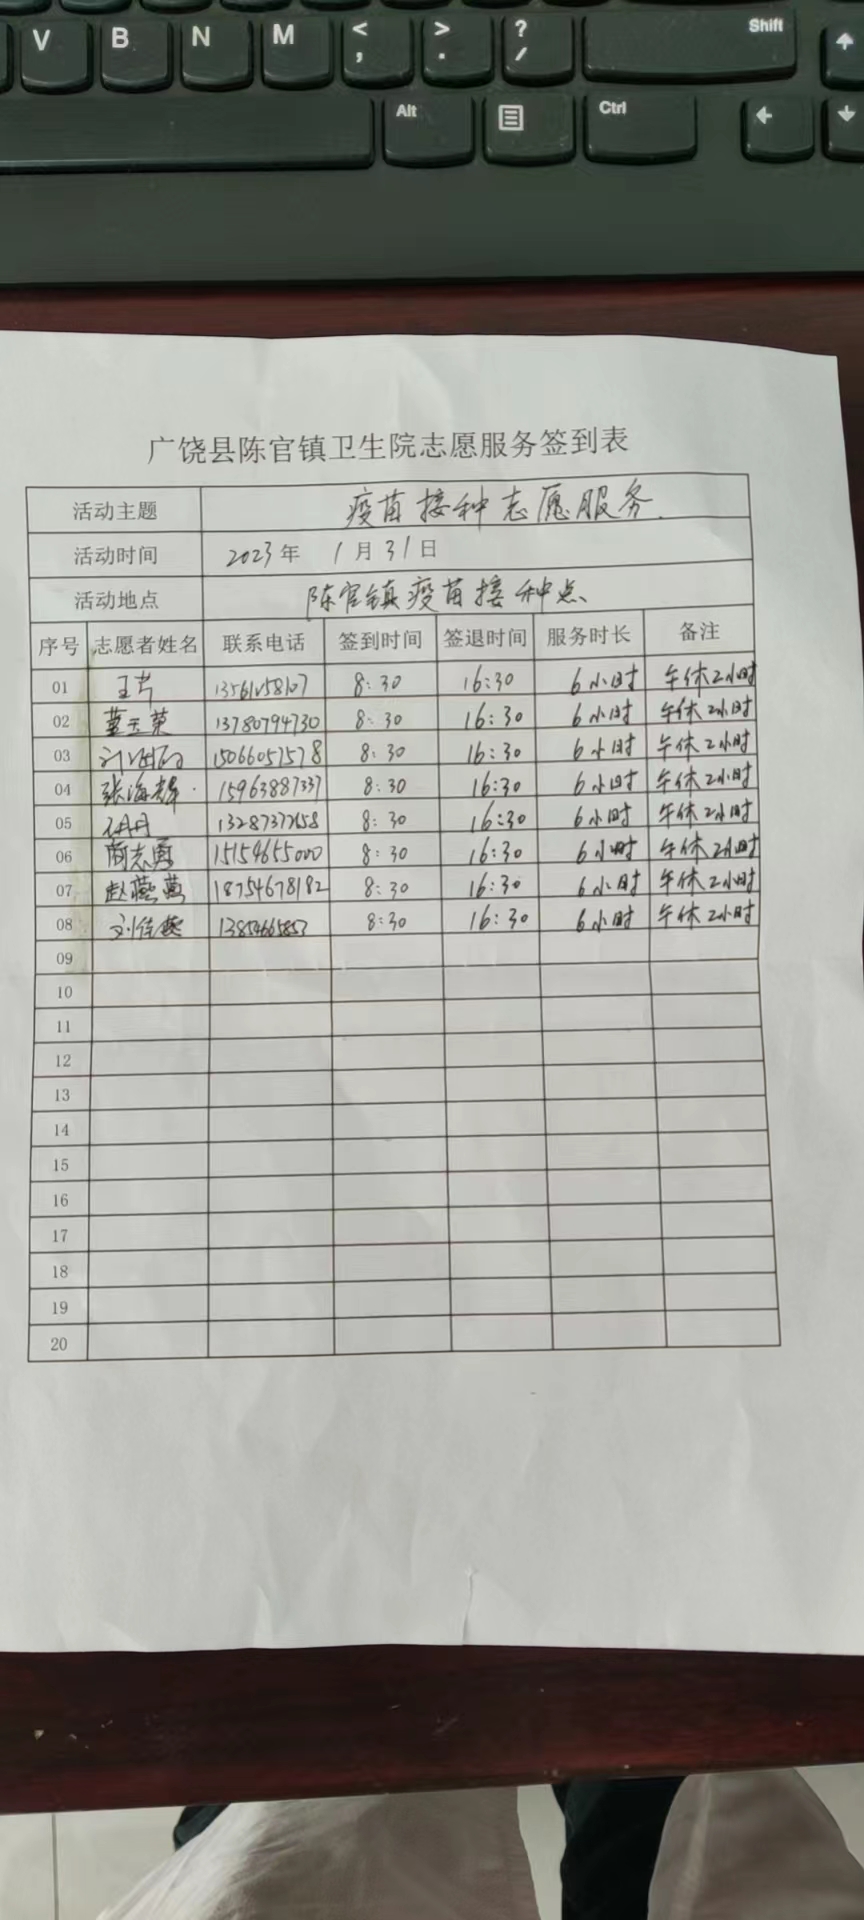 V B N M < , > . ? / Shift
Alt Ctrl
广饶县陈官镇卫生院志愿服务签到表
活动主题 疫苗接种志愿服务.
活动时间 2023年 1月31日
活动地点 陈官镇疫苗接种点
序号 志愿者姓名 联系电话 签到时间 签退时间 服务时长 备注
01 8:30 16:30 6小时 午休2小时
02 13780794730 8:30 16:30 6小时 午休2小时
03 15066057578 8:30 16:30 6小时 午休2小时
04 张海辉 15963887337 8:30 16:30 6小时 午休2小时
05 8:30 16:30 6小时 午休2小时
06 15154655000 8:30 16:30 6小时 午休2小时
07 赵燕燕 18754678182 8:30 16:30 6小时 午休2小时
08 8:30 16:30 6小时 午休2小时
09
10
11
12
13
14
15
16
17
18
19
20